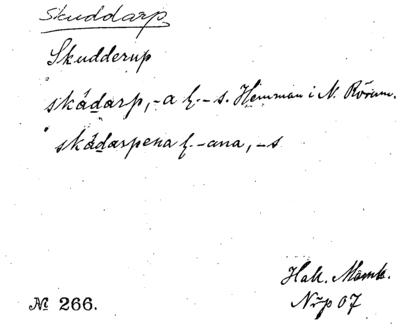 Skuddarp
Skudderup
skådarp, -a l. -s. Hemman i N. Rörum.
skådarpena l. -ana, -s
Hak. Mamk.
№ 266.
Nrp 07